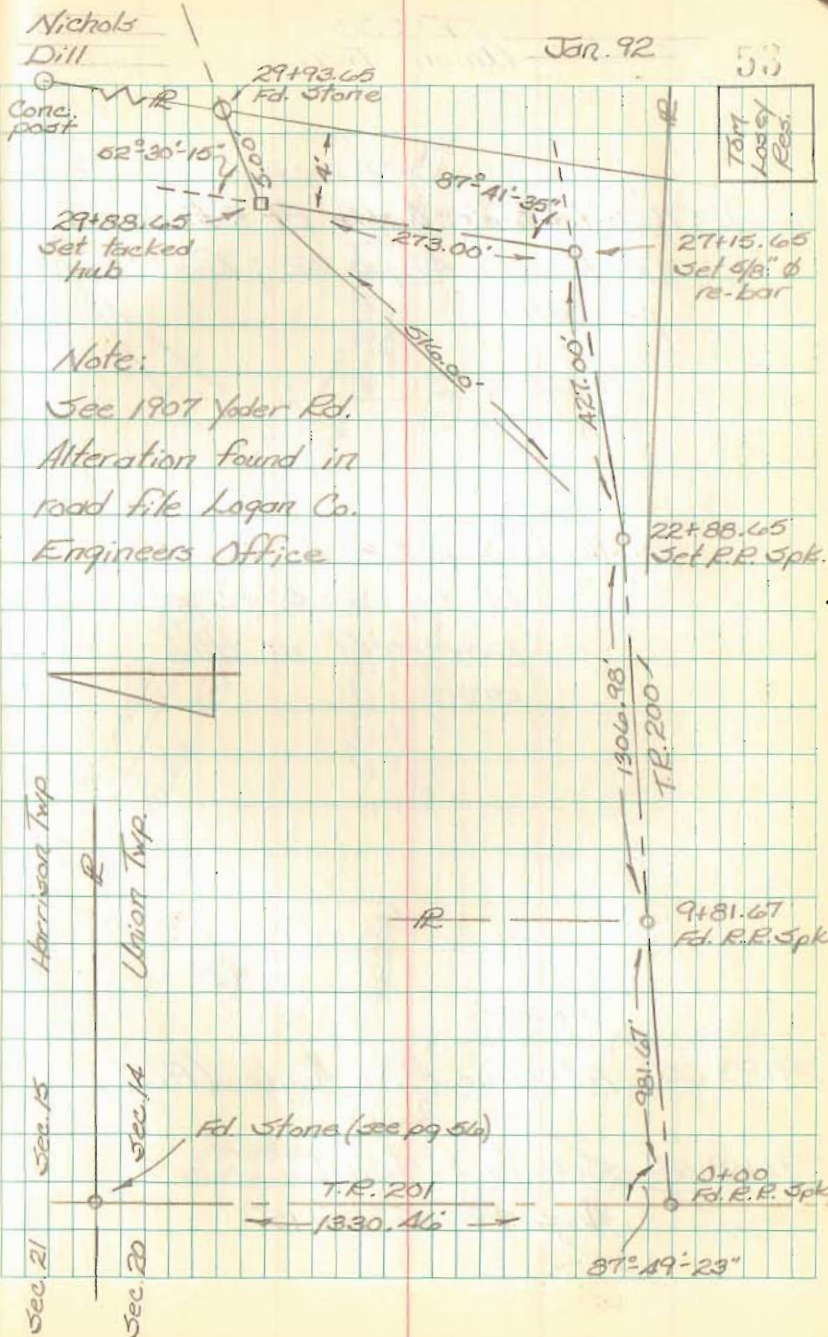 Nichols
Dill
Jan. 92
53
29+93.65
Fd. Stone
Conc.
post
PL
PL
Tom
Lossy
Res.
62°-30'-15"
5.00'
4'
87°-41'-35"
29+88.65
Set tacked
hub
273.00'
27+15.65
Set 5/8" ø
re-bar
516.00'
427.00'
Note:
See 1907 Yoder Rd.
Alteration found in
road file Logan Co.
Engineers Office
22+88.65
Set R.R. Spk.
1306.98'
T.R. 200
Harrison Twp
PL
Union Twp.
PL
9+81.67
Fd. R.R. Spk.
981.67'
Sec. 15
Sec. 14
Fd. Stone (see pg 56)
T.R. 201
1330.46'
0+00
Fd. R.R. Spk.
87°-49'-23"
Sec. 21
Sec. 20